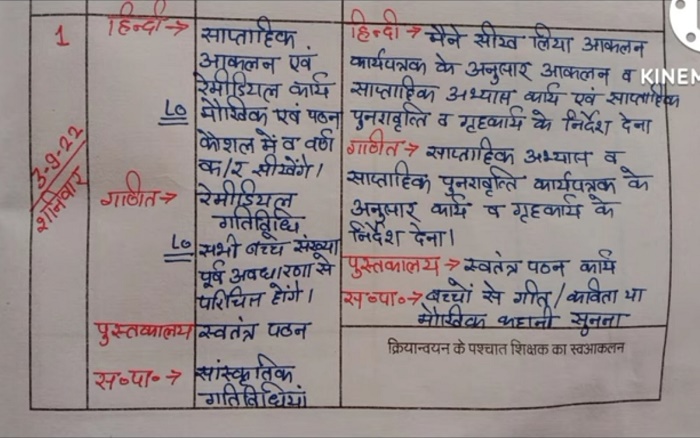 1
3-9-22
शनिवार
हिन्दी →
साप्ताहिक
आकलन एवं
रेमीडियल कार्य
LO मौखिक एवं पठन
कौशल में व वर्ण
क/र सीखेंगे।
गणित →
रेमीडियल
गतिविधि
LO सभी बच्चे संख्या
पूर्व अवधारणा से
परिचित होंगे।
पुस्तकालय स्वतंत्र पठन
स०पा० → सांस्कृतिक
गतिविधियां
हिन्दी → मैने सीख लिया आकलन
कार्यपत्रक के अनुसार आकलन व
साप्ताहिक अभ्यास कार्य एवं साप्ताहिक
पुनरावृत्ति व गृहकार्य के निर्देश देना
गणित → साप्ताहिक अभ्यास व
साप्ताहिक पुनरावृत्ति कार्यपत्रक के
अनुसार कार्य व गृहकार्य के
निर्देश देना।
पुस्तकालय → स्वतंत्र पठन कार्य
स०पा० → बच्चों से गीत/कविता या
मौखिक कहानी सुनना
क्रियान्वयन के पश्चात शिक्षक का स्वआकलन
KINEM